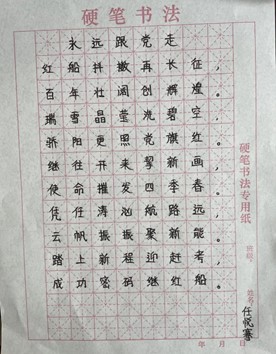 硬笔书法
永远跟党走
红船抖擞再长征，
百年壮阔创辉煌。
瑞雪晶莹洗碧空
骄阳更亮党旗红。
继往开来擎新画，
使命催发四季春。
凭任涛汹航路远
云帆振振聚新能，
踏上新程迎赶考，
成功密码继红船。
硬笔书法专用纸
班级：
姓名：任悦骞
年 月 日